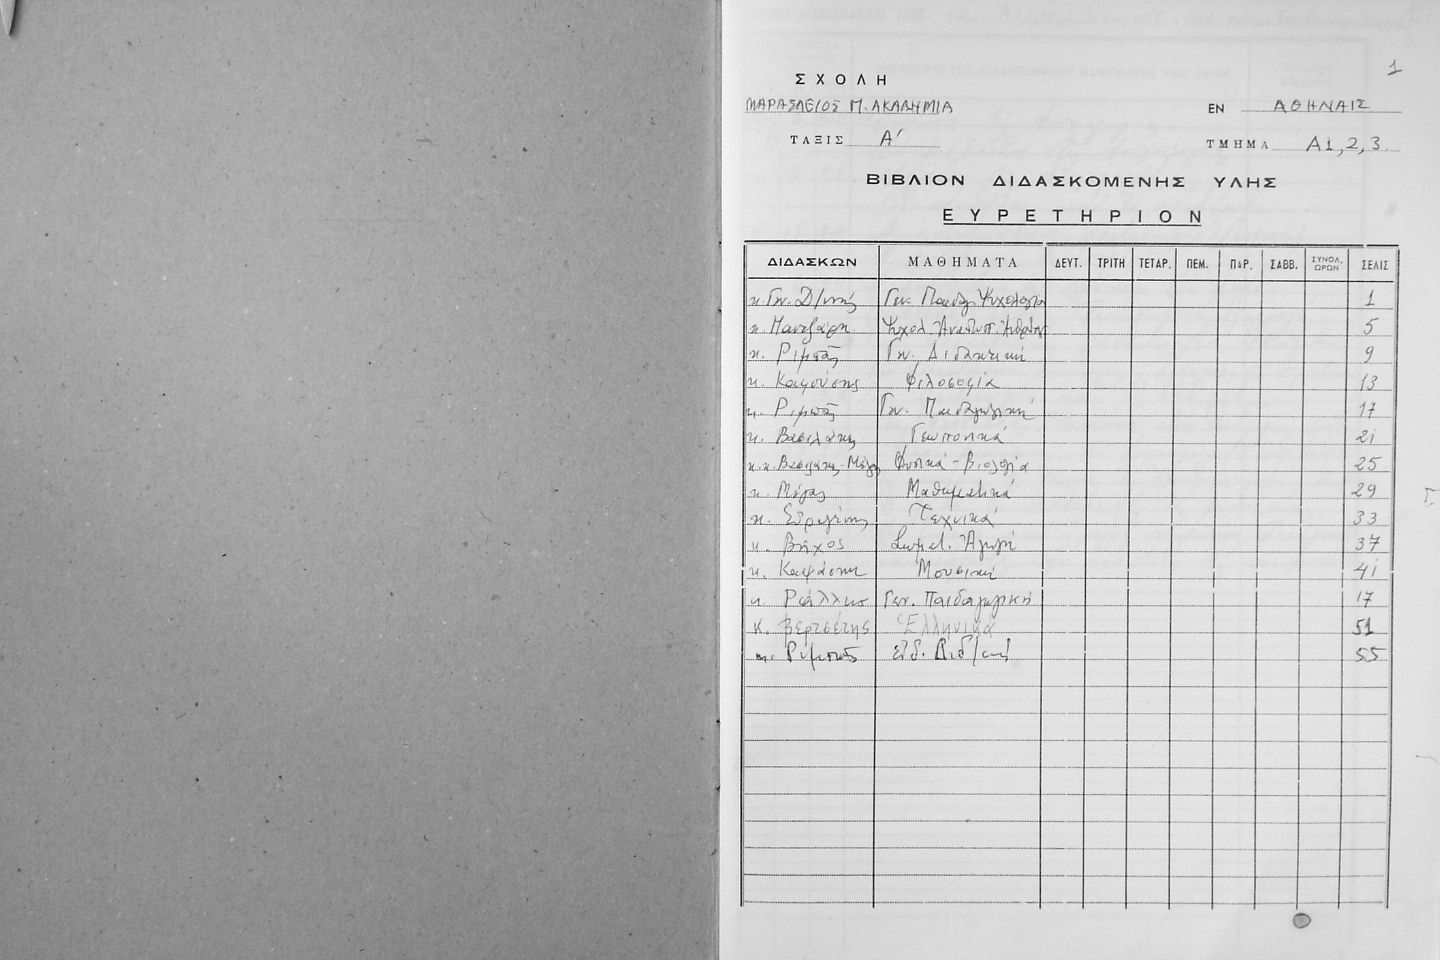 1
ΣΧΟΛΗ
ΜΑΡΑΣΛΕΙΟΣ Π. ΑΚΑΔΗΜΙΑ ΕΝ ΑΘΗΝΑΙΣ
ΤΑΞΙΣ Α' ΤΜΗΜΑ Α1,2,3.
ΒΙΒΛΙΟΝ ΔΙΔΑΣΚΟΜΕΝΗΣ ΥΛΗΣ
ΕΥΡΕΤΗΡΙΟΝ
ΔΙΔΑΣΚΩΝ ΜΑΘΗΜΑΤΑ ΔΕΥΤ. ΤΡΙΤΗ ΤΕΤΑΡ. ΠΕΜ. ΠΑΡ. ΣΑΒΒ. ΣΥΝΟΛ. ΩΡΩΝ ΣΕΛΙΣ
κ. Γεν. Παιδ. Ψυχολογία 1
κ. Ψυχολ. 5
κ. Ριμπᾶς Γεν. Διδακτική 9
κ. Φιλοσοφία 13
κ. Ριμπᾶς Γεν. Παιδαγωγική 17
κ. Βασιλάκης Γεωπονικά 21
κ.κ. Βασιλάκης - Μέγας Φυσικά - Βιολογία 25
κ. Μέγας Μαθηματικά 29
κ. Τεχνικά 33
κ. Βῆχος Σωματ. Ἀγωγή 37
κ. Μουσική 41
κ. Γεν. Παιδαγωγική 17
κ. Βερτσέτης Ἑλληνικά 51
κ. Ριμπᾶς Εἰδ. Διδ/κή 55